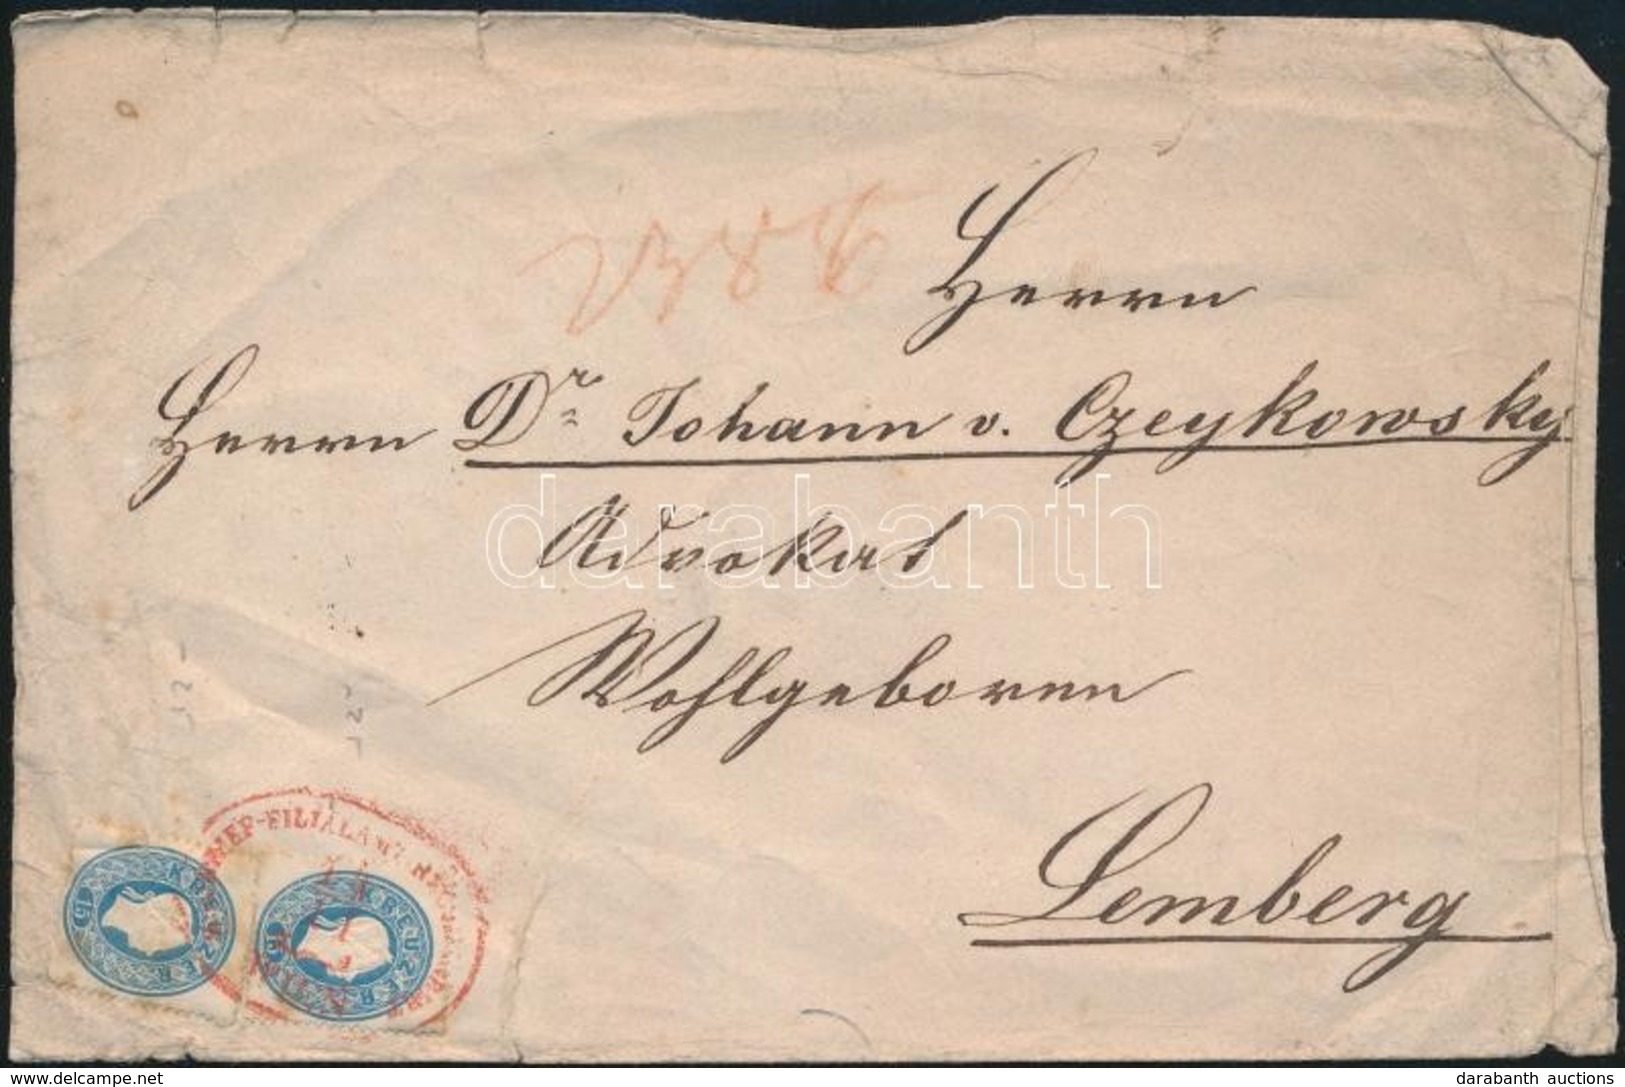 Herrn
Herrn Dr. Johann v. Czeykowsky
Advokat
darabanth
Wohlgeboren
Lemberg
BRIEF-FILIALAMT
15 KREUZER
15 KREUZER
www.delcampe.net
darabanth auctions